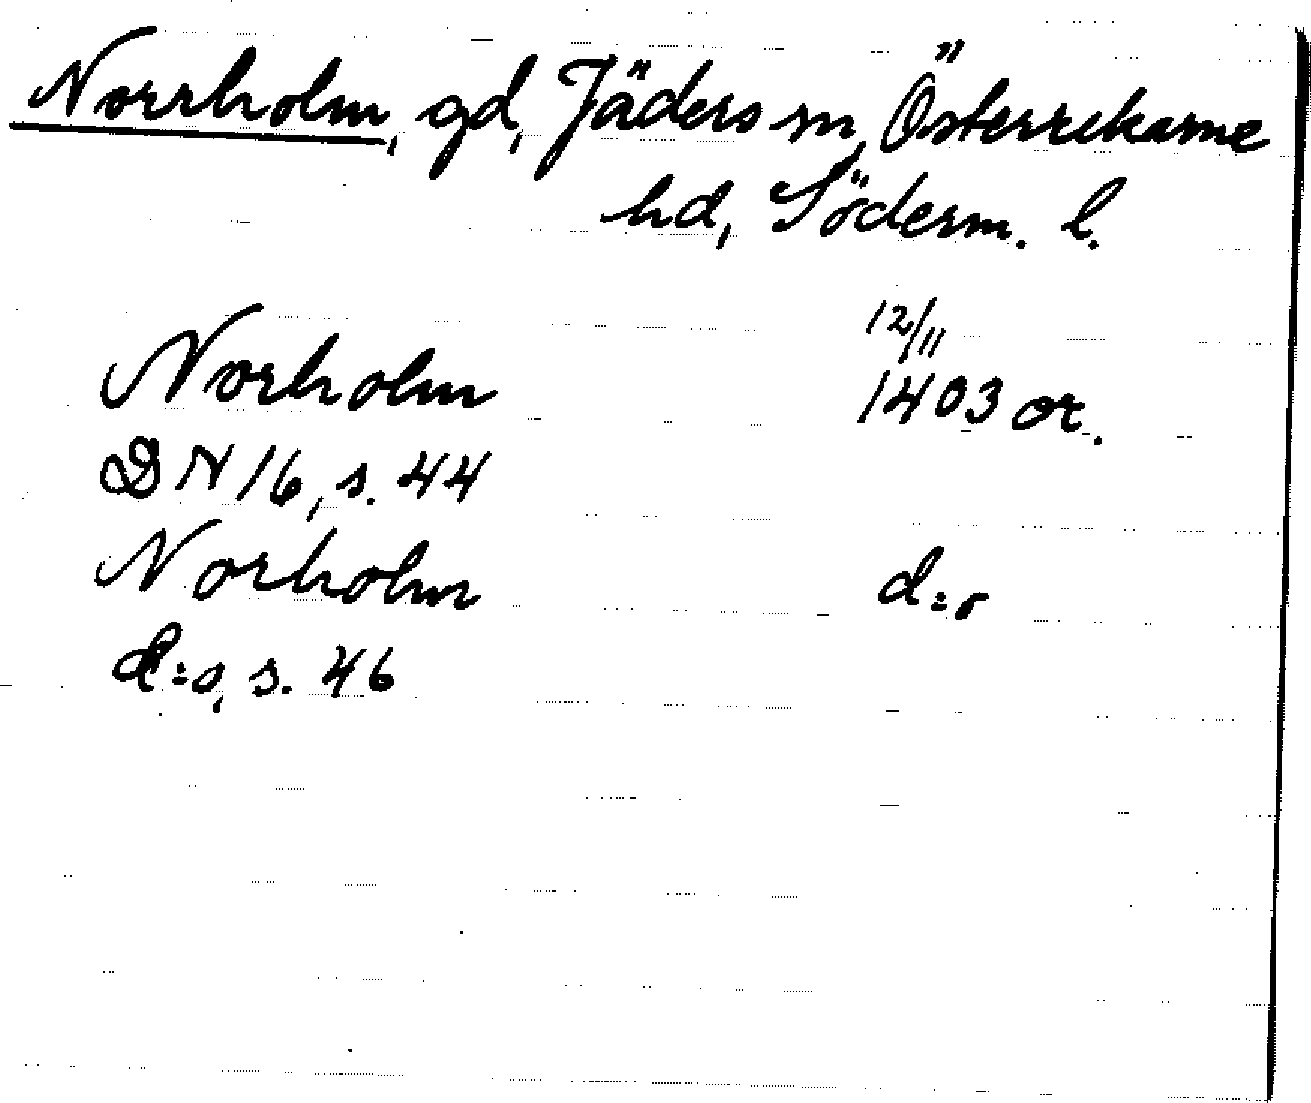 Norrholm, gd, Jäders sn, Österrekarne
hd, Söderm. l.
Norholm 12/11 1403 or.
DN 16, s. 44
Norholm d:o
d:o, s. 46